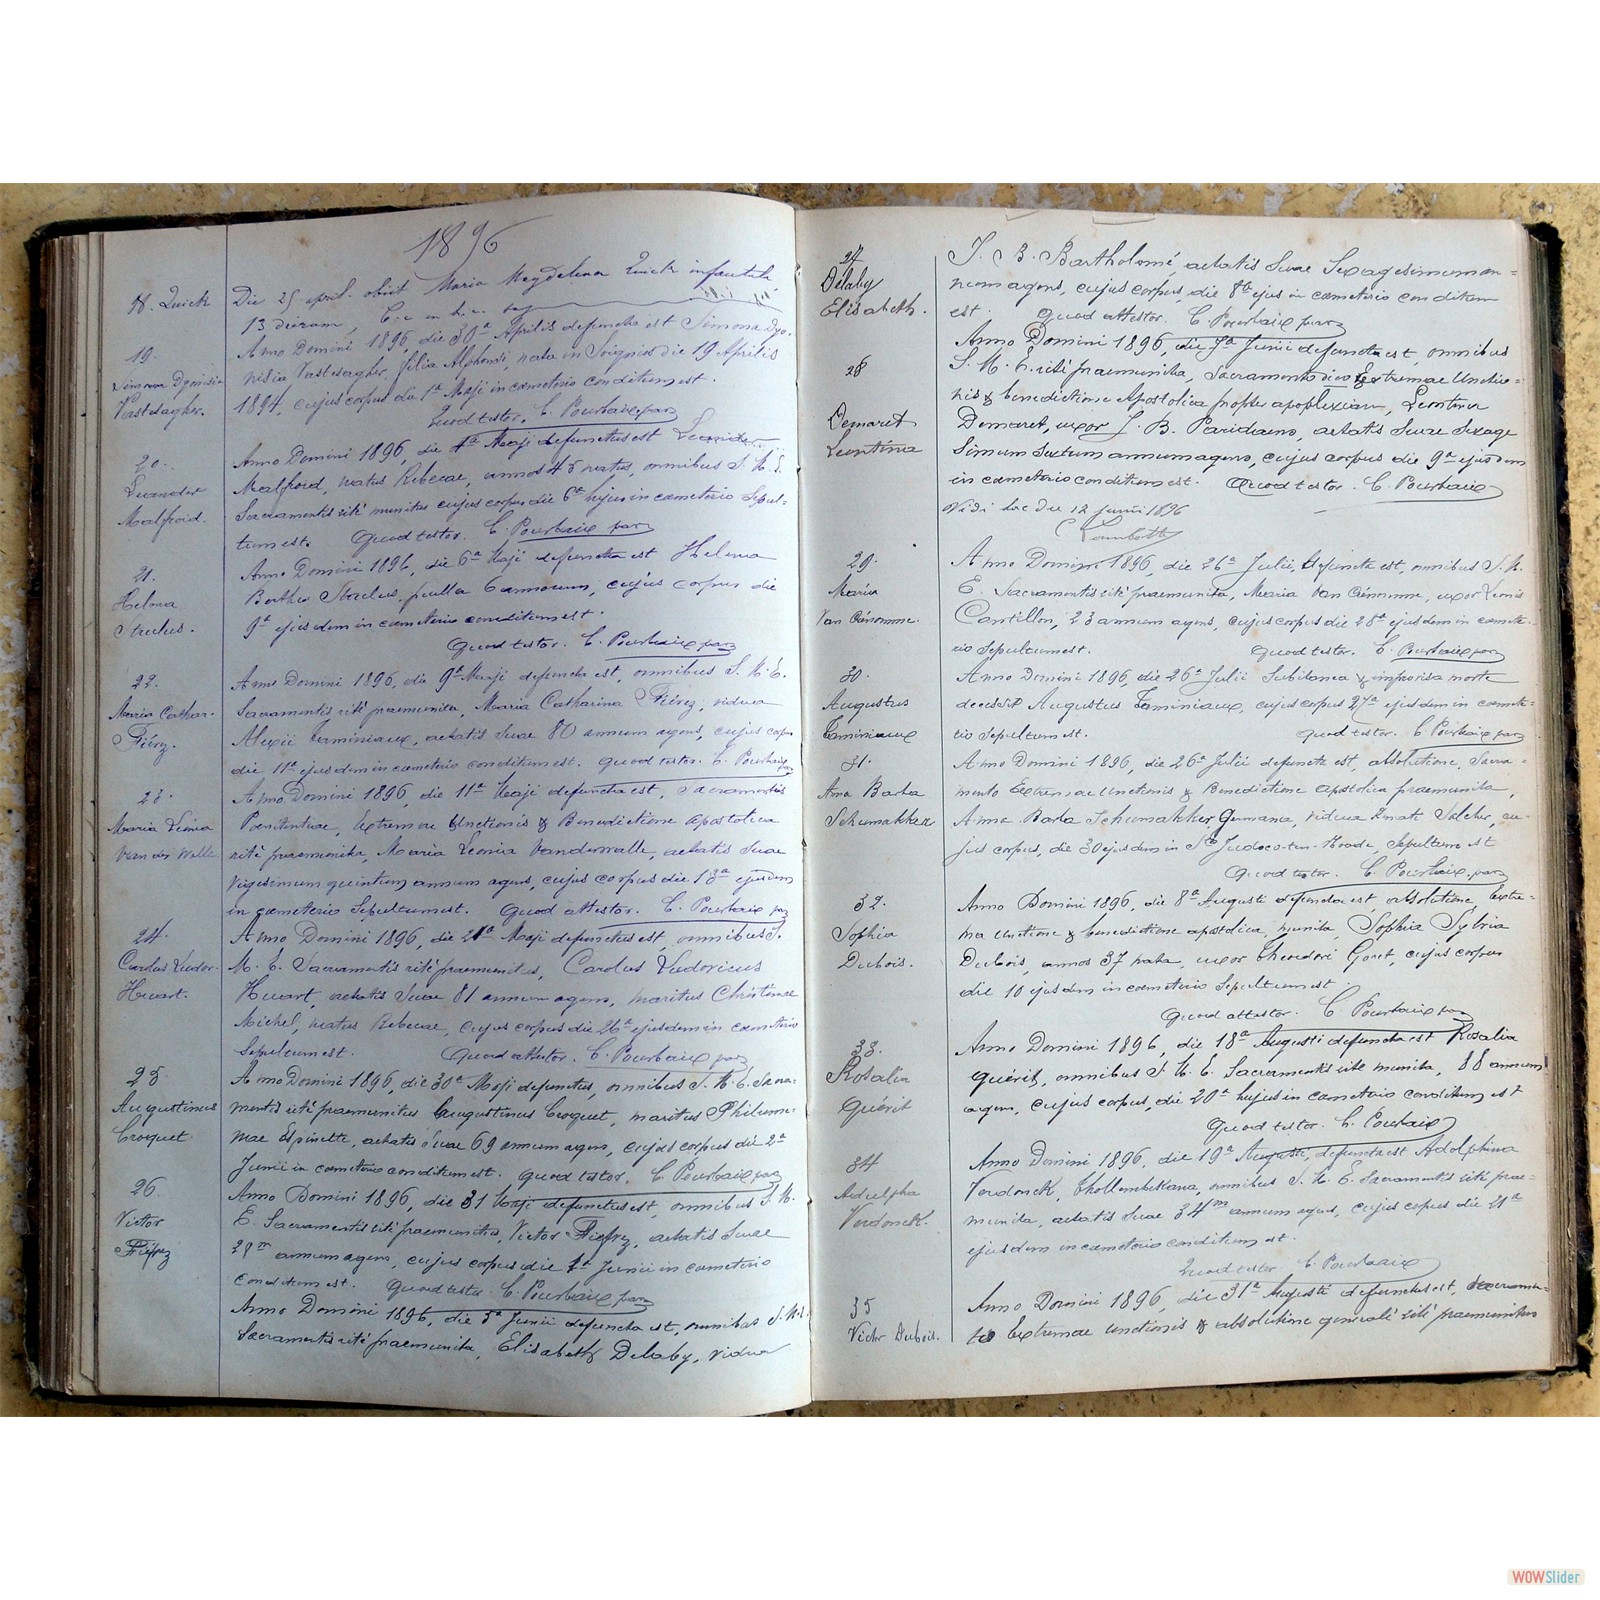 1896
18. Quick
Die 25 april. obiit Maria Magdelena Quick infantula
13 dierum,
19.
Simona Dyonisia
Vastesagher.
Anno Domini 1896, die 30ª Aprilis defuncta est Simona Dyo-
nisia Vastesagher, filia Alphonsi, nata in Soignies die 19 Aprilis
1894, cujus corpus die 1ª Maji in cœmeterio conditum est.
Quod testor. C. Pourbaix par
20.
Leander
Malfroid.
Anno Domini 1896, die 4ª Maji defunctus est Leander
Malfroid, natus Rebecae, annos 45 natus, omnibus S. M. E.
Sacramentis rité munitus cujus corpus die 6ª hujus in cœmeterio Sepul-
tum est. Quod testor. C. Pourbaix par
21.
Helena
Straelus.
Anno Domini 1896, die 6ª Maji defuncta est Helena
Bertha Straelus, puella 6 annorum, cujus corpus die
9ª ejusdem in cœmeterio conditum est.
Quod testor. C. Pourbaix par
22.
Maria Cathar.
Fiérez.
Anno Domini 1896, die 9ª Maji defuncta est, omnibus S. M. E.
Sacramentis rité praemunita, Maria Catharina Fiérez, vidua
Alexii Taminiaux, aetatis Suae 80 annum agens, cujus corpus
die 11ª ejusdem in cœmeterio conditum est. Quod testor. C. Pourbaix
23.
Maria Leonia
Van der Walle
Anno Domini 1896, die 11ª Maji defuncta est, Sacramentis
Pœnitentiae, Extremae Unctionis & Benedictione Apostolica
rité praemunita, Maria Leonia Vanderwalle, aetatis Suae
Vigesimum quintum annum agens, cujus corpus die 13ª ejusdem
in cœmeterio Sepultum est. Quod attestor. C. Pourbaix par
24.
Carolus Ludov.
Huart.
Anno Domini 1896, die 21ª Maji defunctus est, omnibus S.
M. E. Sacramentis rité praemunitus, Carolus Ludovicus
Huart, aetatis Suae 81 annum agens, maritus Christinae
Michel, natus Rebecae, cujus corpus die 26ª ejusdem in cœmeterio
Sepultum est. Quod attestor. C. Pourbaix par
25.
Augustinus
Croquet.
Anno Domini 1896, die 30ª Maji defunctus, omnibus S. M. E. Sacra-
mentis rité praemunitus Augustinus Croquet, maritus Philume-
nae Espinette, aetatis Suae 69 annum agens, cujus corpus die 2ª
Junii in cœmeterio conditum est. Quod testor. C. Pourbaix par
26
Victor
Fiéfrez
Anno Domini 1896, die 31 Maji defunctus est, omnibus S. M.
E. Sacramentis rité praemunitus, Victor Fiéfrez, aetatis Suae
28m annum agens, cujus corpus die 1ª Junii in cœmeterio
conditum est. Quod testor. C. Pourbaix par
Anno Domini 1896, die 5ª Junii defuncta est, omnibus S. M. E.
Sacramentis rité praemunita, Elisabeth Delaby, vidua
27
Delaby
Elisabeth.
J. B. Bartholomé, aetatis Suae Sexagesimum an-
num agens, cujus corpus, die 8ª ejus in cœmeterio conditum
est. Quod attestor. C. Pourbaix par
28
Demaret
Leontina
Anno Domini 1896, die 7ª Junii defuncta est, omnibus
S. M. E. rité praemunita, Sacramento Extremae Unctio-
nis & benedictione Apostolica propter apoplexiam, Leontina
Demaret, uxor J. B. Paridaens, aetatis Suae Sexage
Simum Sextum annum agens, cujus corpus die 9ª ejusdem
in cœmeterio conditum est. Quod testor. C. Pourbaix
Vidi hac die 12 junii 1896
Lambotte
29.
Maria
Van Crénonme.
Anno Domini 1896, die 26ª Julii, defuncta est, omnibus S. M.
E. Sacramentis rité praemunita, Maria Van Crénonme, uxor Leonis
Cantillon, 23 annum agens, cujus corpus die 28ª ejusdem in cœmete-
rio Sepultum est. Quod testor. C. Pourbaix par
30.
Augustus
Taminiaux
Anno Domini 1896, die 26ª Julii Subitanea & improvisa morte
decessit Augustus Taminiaux, cujus corpus 27ª ejusdem in cœmete-
rio Sepultum est. Quod testor. C. Pourbaix par
31.
Anna Barba
Schumakker
Anno Domini 1896, die 26ª Julii defuncta est, absolutione, Sacra-
mento Extremae Unctionis & Benedictione apostolica praemunita,
Anna Barba Schumakker Germana, vidua Selcher, cu-
jus corpus, die 30 ejusdem in St Judoco-ten-Noode, Sepultum est
Quod testor. C. Pourbaix, par
32.
Sophia
Dubois.
Anno Domini 1896, die 8ª Augusti defuncta est absolutione, Extre-
ma Unctione & benedictione apostolica, munita, Sophia Sylvia
Dubois, annos 37 nata, uxor Theodori Goret, cujus corpus
die 10 ejusdem in cœmeterio Sepultum est
Quod attestor. C Pourbaix par
33.
Rosalia
Guérit
Anno Domini 1896, die 18ª Augusti defuncta est Rosalia
Guérit, omnibus S. M. E. Sacramentis rité munita, 88 annum
agens, cujus corpus, die 20ª hujus in cœmeterio conditum est
Quod testor. C. Pourbaix
34
Adolpha
Verdonck.
Anno Domini 1896, die 19ª Augusti, defuncta est Adolphina
Verdonck, Thollembekana, omnibus S. M. E. Sacramentis rité prae-
munita, aetatis Suae 34m annum agens, cujus corpus die 21ª
ejusdem in cœmeterio conditum est.
Quod testor C. Pourbaix
35
Victor Dubois.
Anno Domini 1896, die 31ª Augusti defunctus est, Sacramen-
to Extremae Unctionis & absolutione generali rité praemunitus
WOWSlider